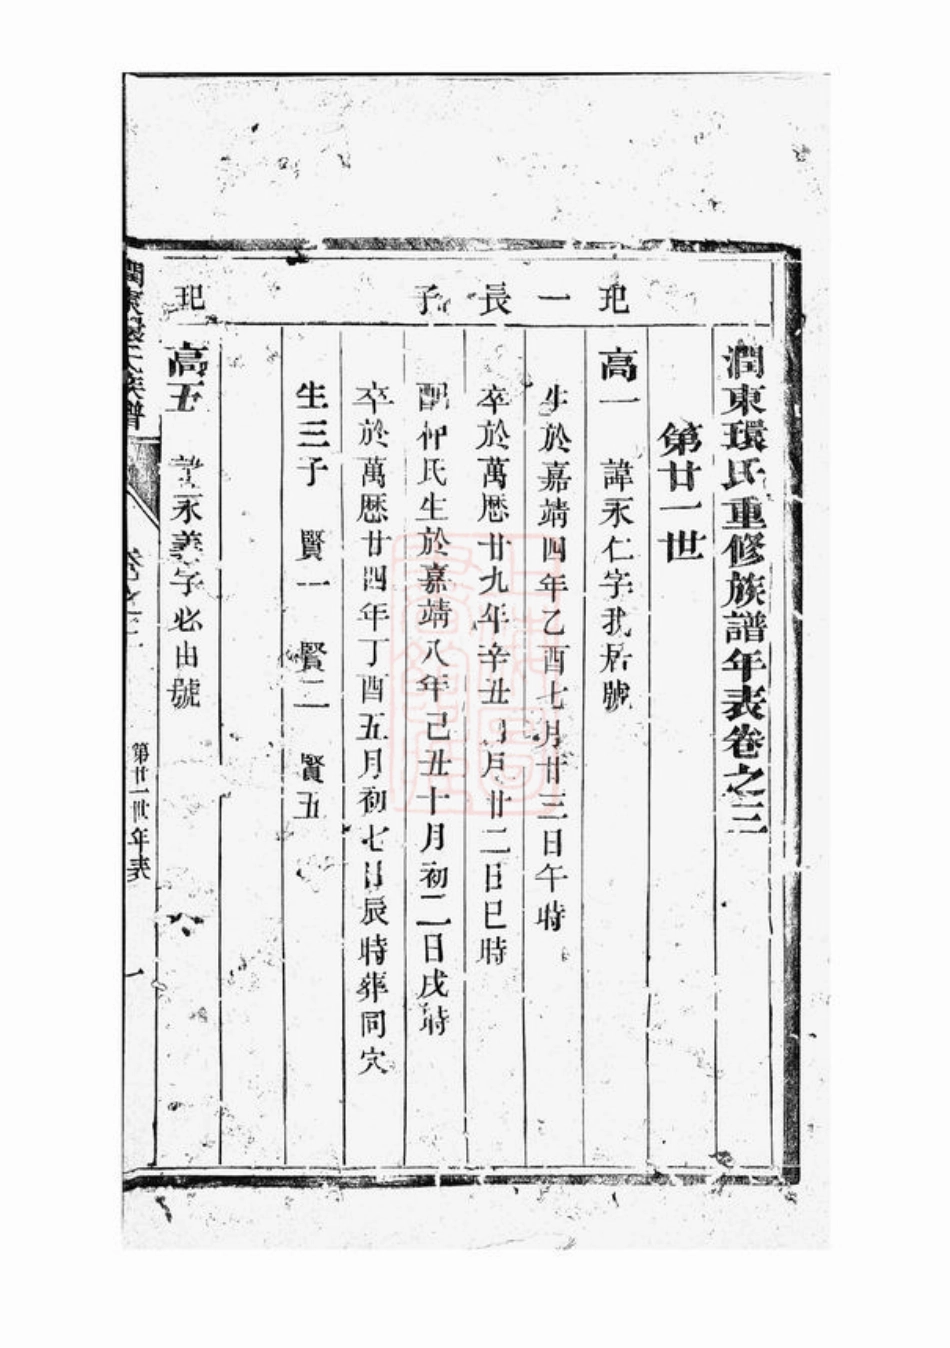 潤東環氏重修族譜年表卷之三
第廿一世
玘一長子
高一 諱永仁字我居號
生於嘉靖四年乙酉七月廿三日午時
卒於萬歷廿九年辛丑 月廿二日巳時
配仲氏生於嘉靖八年己丑十月初二日戌時
卒於萬歷廿四年丁酉五月初七日辰時葬同穴
生三子 賢一 賢二 賢五
玘
高五 諱永義字必由號
潤東環氏族譜 卷之三 第廿一世年表 一